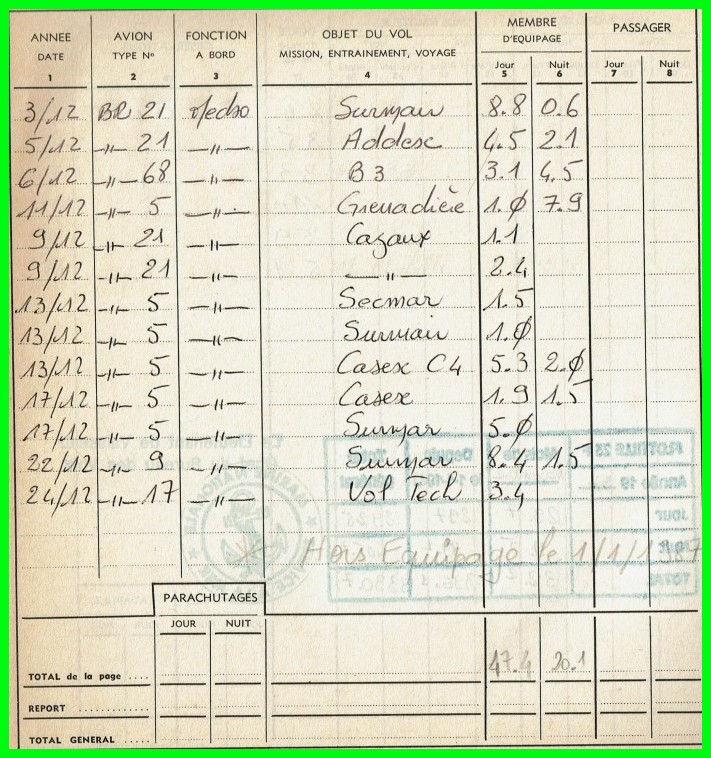 ANNEE DATE AVION TYPE No FONCTION A BORD OBJET DU VOL MISSION, ENTRAINEMENT, VOYAGE MEMBRE D'EQUIPAGE PASSAGER
Jour Nuit Jour Nuit
1 2 3 4 5 6 7 8
3/12 BR 21 Surmar 8.8 0.6
5/12 —"— 21 —"— Addesc 4.5 2.1
6/12 —"— 68 —"— B3 3.1 4.5
11/12 —"— 5 —"— Grenadière 1.0 7.9
9/12 —"— 21 —"— Cazaux 1.1
9/12 —"— 21 —"— —"— 2.4
13/12 —"— 5 —"— Secmar 1.5
13/12 —"— 5 —"— Surmar 1.0
13/12 —"— 5 —"— Casex C4 5.3 2.0
17/12 —"— 5 —"— Casex 1.9 1.5
17/12 —"— 5 —"— Surmar 5.0
22/12 —"— 9 —"— Surmar 8.4 1.5
24/12 —"— 17 —"— Vol Tech 3.4
Hors Equipage le 1/1/1987
PARACHUTAGES
JOUR NUIT
TOTAL de la page .... 47.4 20.1
REPORT
TOTAL GENERAL